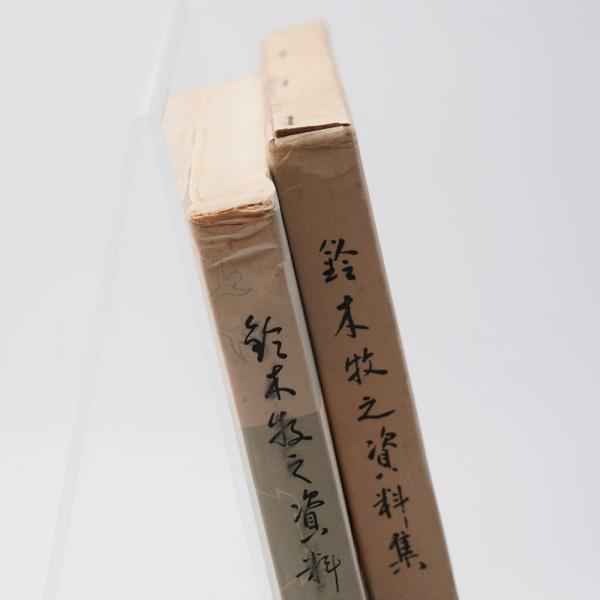 鈴木牧之資料
鈴木牧之資料集